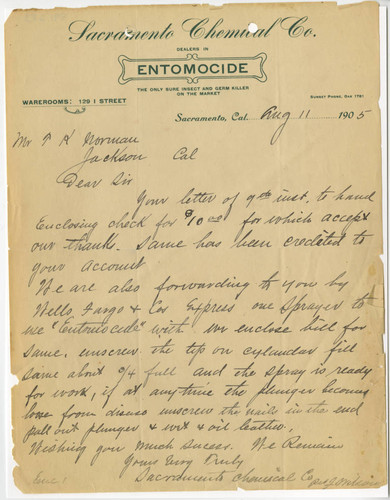 Sacramento Chemical Co.
DEALERS IN
ENTOMOCIDE
THE ONLY SURE INSECT AND GERM KILLER
ON THE MARKET
WAREROOMS: 129 I STREET
SUNSET PHONE, OAK 1781
Sacramento, Cal. Aug 11 1905
Mr T K Norman
Jackson Cal
Dear Sir
Your letter of 9th inst. to hand
Enclosing check for $10.00 for which accept
our thanks. Same has been credited to
your account
We are also forwarding to you by
Wells Fargo & Co Express one sprayer to
use "Entomocide" with we enclose bill for
same, unscrew the tip on cylander fill
same about 3/4 full and the spray is ready
for work, if at anytime the plunger becoms
loose from disuse unscrew the nails in the end
pull out plunger & wet & oil leather,
Wishing you much sucess. We Remain
Yours Very Truly
Sacramento Chemical Co